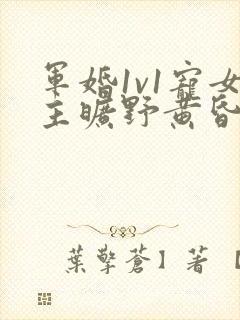 軍婚1v1寵女
主曠野黃昏
葉擎蒼】著【